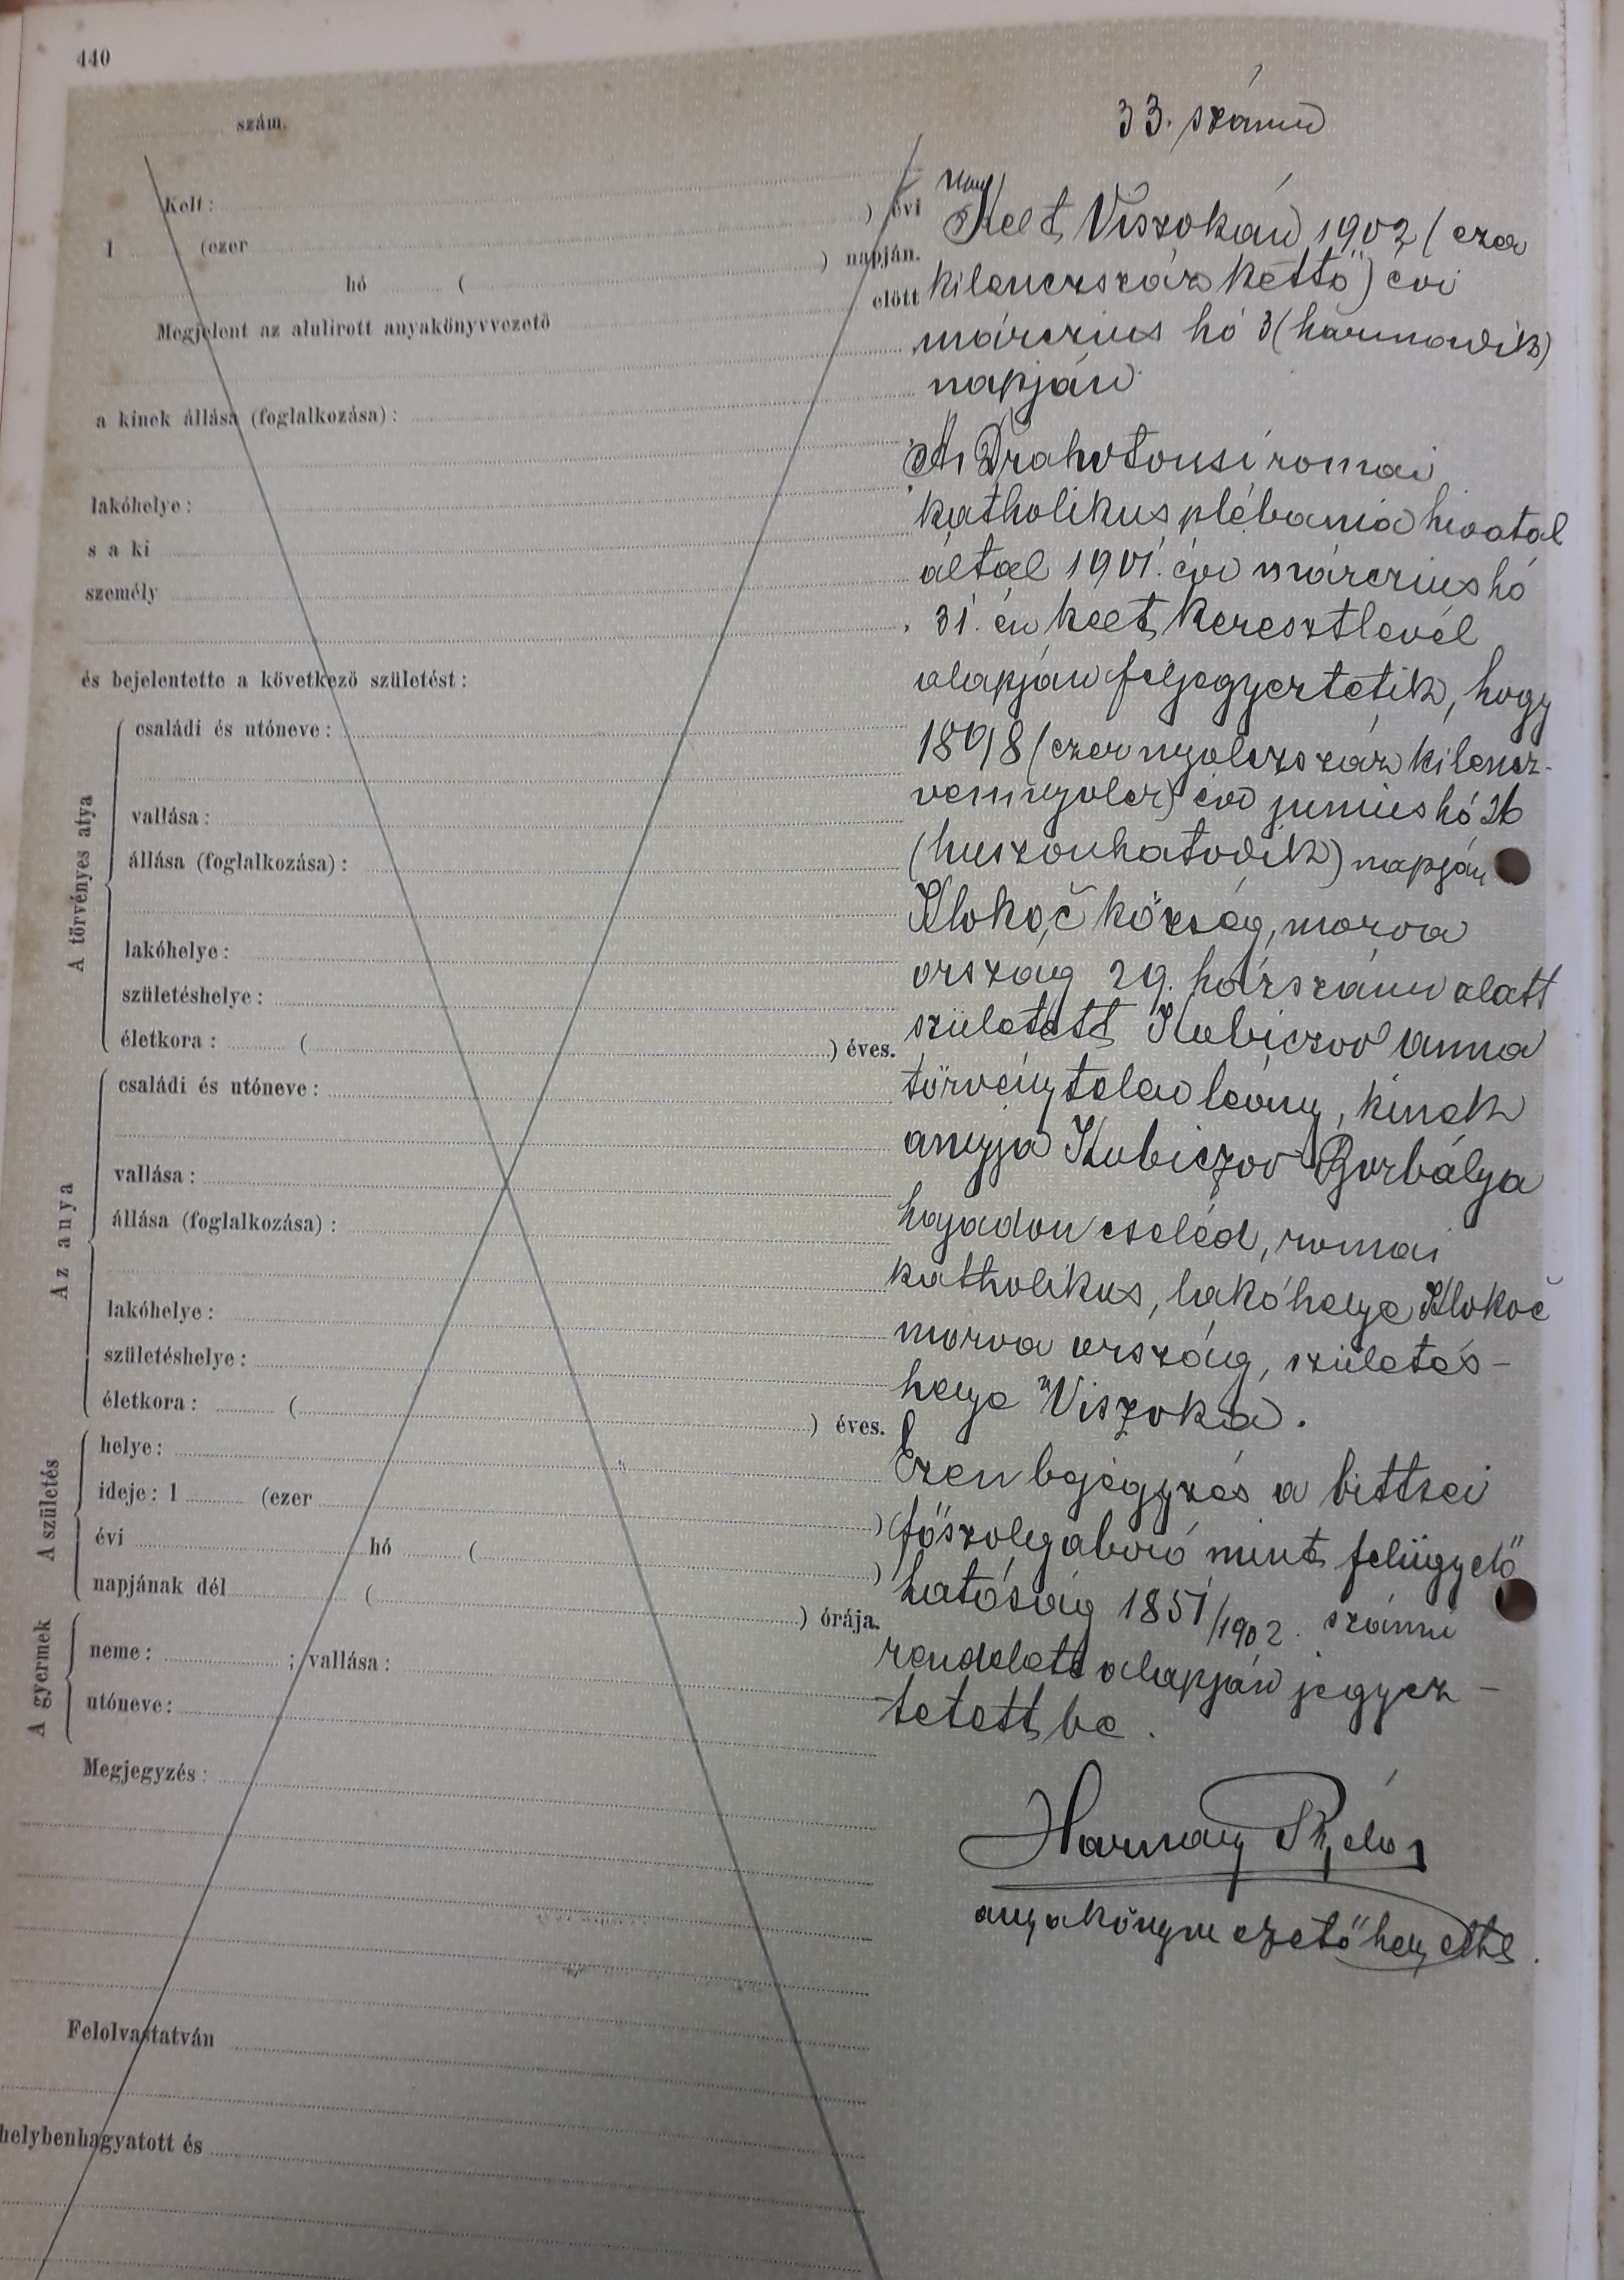 440
szám.
33. számu
Kelt:
) évi
1 (ezer
) napján.
hó (
előtt
Megjelent az alulirott anyakönyvvezető
a kinek állása (foglalkozása):
lakóhelye:
s a ki
személy
és bejelentette a következő születést:
A törvényes atya
családi és utóneve:
vallása:
állása (foglalkozása):
lakóhelye:
születéshelye:
életkora: ( ) éves.
Az anya
családi és utóneve:
vallása:
állása (foglalkozása):
lakóhelye:
születéshelye:
életkora: ( ) éves.
A születés
helye:
ideje: 1 (ezer
)
évi hó (
)
napjának dél ( ) órája.
A gyermek
neme: ; vallása:
utóneve:
Megjegyzés:
Felolvastatván
helybenhagyatott és
Nagy
Kelt Viszokán 1902 (ezer
kilenczszáz kettő) évi
márczius hó 3 (harmadik)
napján
A Drahotousi romai
katholikus plébania hivatal
által 1901. évi márczius hó
31. én kelt keresztlevél
alapján feljegyeztetik, hogy
1898 (ezer nyolczszáz kilencz-
vennyolcz) évi junius hó 26
(huszonhatodik) napján
Klokoč község, morva
ország 29. házszám alatt
született Kubiczov Anna
törvénytelen leány, kinek
anyja Kubiczov Borbálya
hajadon cseléd, romai
katholikus, lakóhelye Klokoč
morva ország, születés-
helye N Viszoka.
Ezen bejegyzés a bittsei
főszolgabiró mint felügyelő
hatóság 1851/1902. számu
rendelete alapján jegyez-
tetett be.
anyakönyvvezető helyettes.